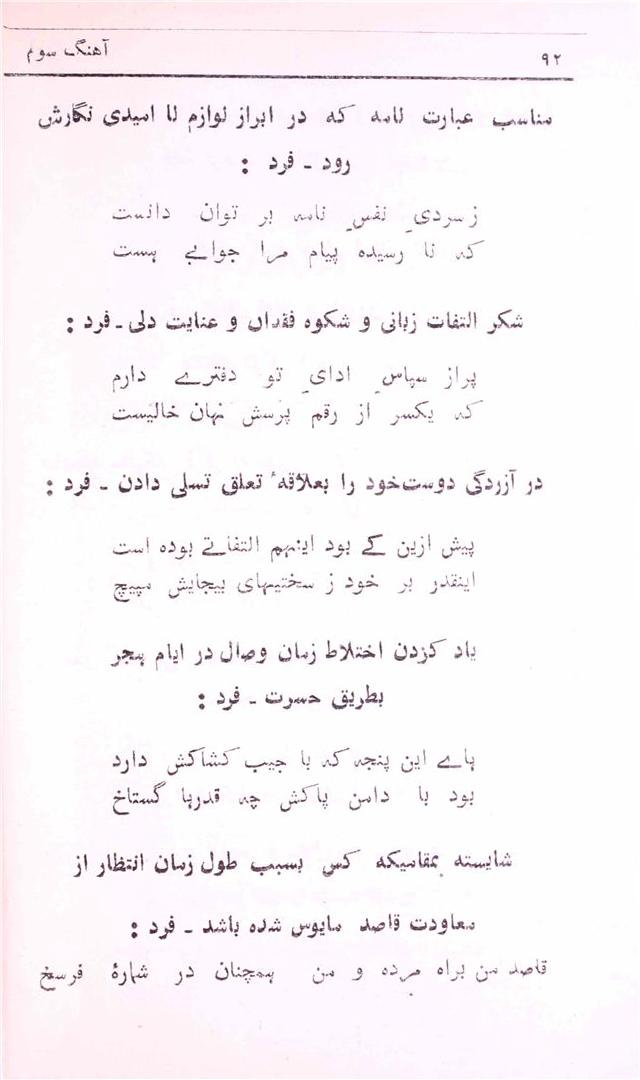 ۹۲ آهنگ سوم
مناسب عبارت نامه که در ابراز لوازم نا امیدی نگارش
رود ـ فرد :
ز سردیِ نفسِ نامه بر توان دانست
که نا رسیده پیام مرا جوابے ہست
شکر التفات زبانی و شکوه فقدان و عنایت دلی ـ فرد :
پراز سپاسِ ادایِ تو دفترے دارم
که یکسر از رقم پرسش نهان خالیست
در آزردگی دوست خود را بعلاقهٔ تعلق تسلی دادن ـ فرد :
پیش ازین کے بود اینہم التفاتے بوده است
اینقدر بر خود ز سختیهای بیجایش مپیچ
یاد کردن اختلاط زمان وصال در ایام ہجر
بطریق حسرت ـ فرد :
ہاے این پنجه که با جیب کشاکش دارد
بود با دامن پاکش چه قدرہا گستاخ
شایسته بمقامیکه کس بسبب طول زمان انتظار از
معاودت قاصد مایوس شده باشد ـ فرد :
قاصد من براه مرده و من همچنان در شمارهٔ فرسخ